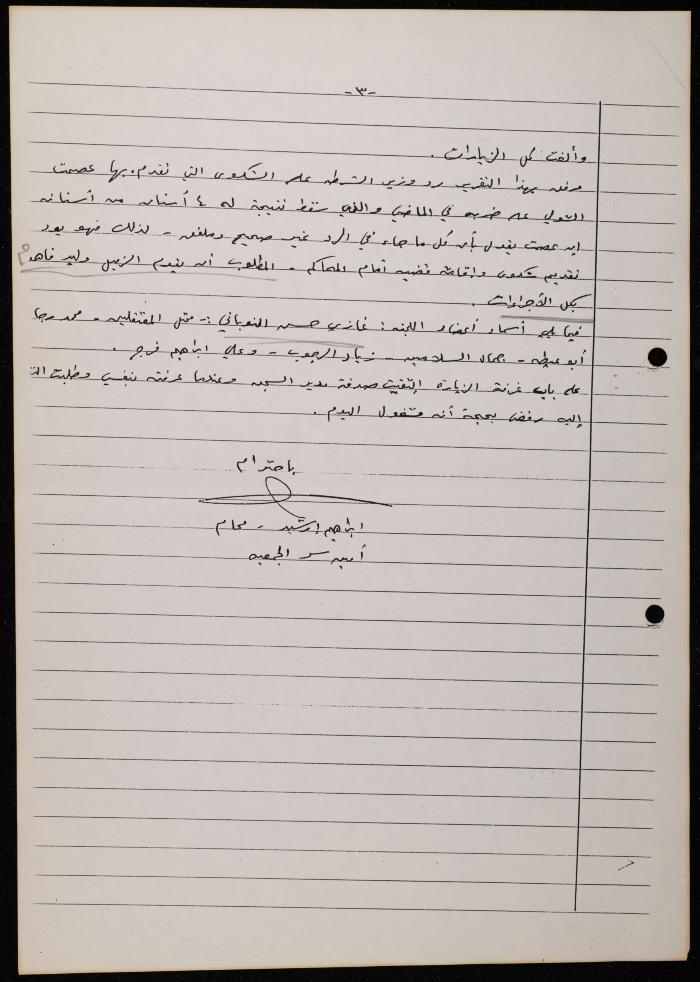 -٣-
وألغت كل الزيارات .
مرفق بهذا التقرير رد وزير الشرطه على الشكوى التي تقدم بها عصمت
على ضربه في الماضي والذي سقط نتيجة له ٤ أسنان من أسنانه
ان عصمت يقول بأن كل ما جاء في الرد غير صحيح وملفق - لذلك فهو يود
تقديم شكوى وإقامة قضيه أمام المحاكم - المطلوب أن يقوم الزميل وليد فاهوم
بكل الأجراءات .
فيما يلي أسماء أعضاء اللجنه : غازي حسن النوباني :- ممثل المعتقلين - محمد رجا
أبو - جمال السلامين - زياد الرجوب - وعلي ابراهيم فرج .
على باب غرفة الزيارة إلتقيت صدفة مدير السجن وعندما عرفته بنفسي وطلبت
إليه رفض بحجة أنه مشغول اليوم .
باحترام
ابراهيم - محام
أمين سر الجمعيه